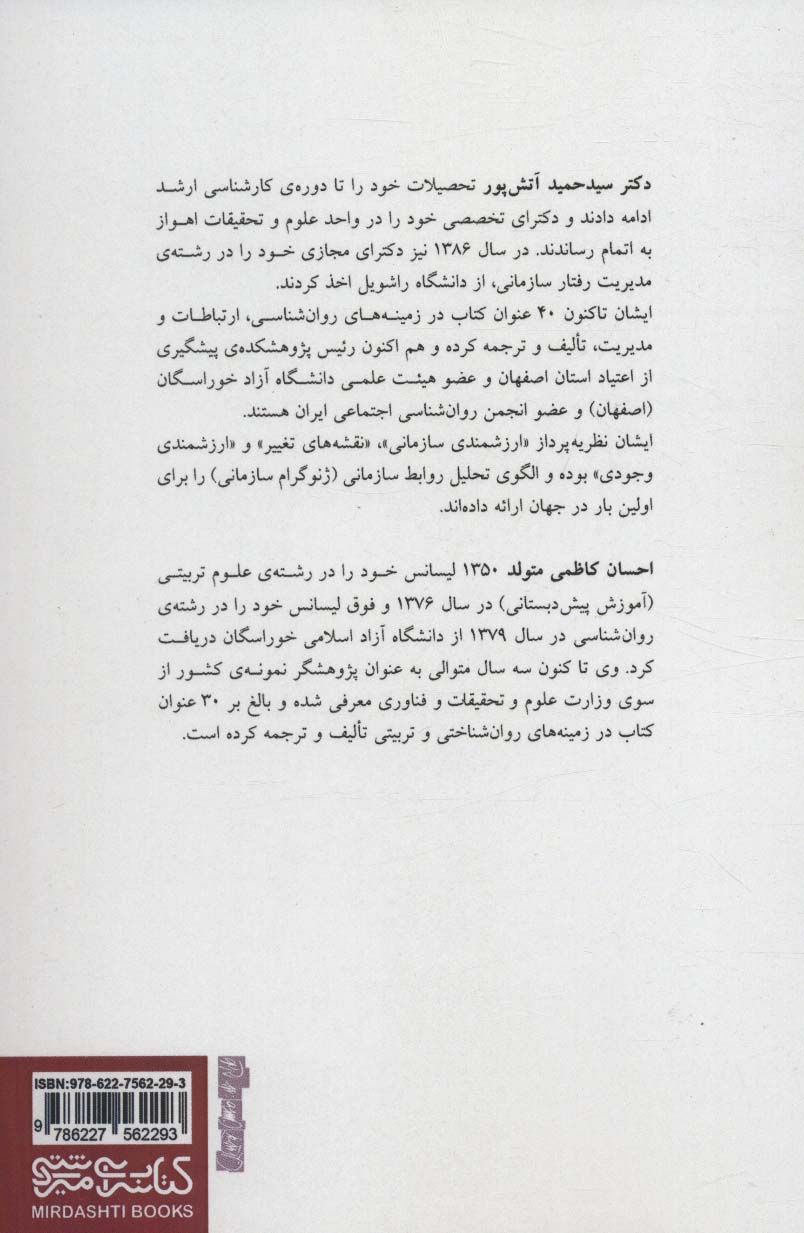 دکتر سیدحمید آتش‌پور تحصیلات خود را تا دوره‌ی کارشناسی ارشد
ادامه دادند و دکترای تخصصی خود را در واحد علوم و تحقیقات اهواز
به اتمام رساندند. در سال ۱۳۸۶ نیز دکترای مجازی خود را در رشته‌ی
مدیریت رفتار سازمانی، از دانشگاه راشویل اخذ کردند.
ایشان تاکنون ۴۰ عنوان کتاب در زمینه‌های روان‌شناسی، ارتباطات و
مدیریت، تألیف و ترجمه کرده و هم اکنون رئیس پژوهشکده‌ی پیشگیری
از اعتیاد استان اصفهان و عضو هیئت علمی دانشگاه آزاد خوراسگان
(اصفهان) و عضو انجمن روان‌شناسی اجتماعی ایران هستند.
ایشان نظریه‌پرداز «ارزشمندی سازمانی»، «نقشه‌های تغییر» و «ارزشمندی
وجودی» بوده و الگوی تحلیل روابط سازمانی (ژنوگرام سازمانی) را برای
اولین بار در جهان ارائه داده‌اند.
احسان کاظمی متولد ۱۳۵۰ لیسانس خود را در رشته‌ی علوم تربیتی
(آموزش پیش‌دبستانی) در سال ۱۳۷۶ و فوق لیسانس خود را در رشته‌ی
روان‌شناسی در سال ۱۳۷۹ از دانشگاه آزاد اسلامی خوراسگان دریافت
کرد. وی تا کنون سه سال متوالی به عنوان پژوهشگر نمونه‌ی کشور از
سوی وزارت علوم و تحقیقات و فناوری معرفی شده و بالغ بر ۳۰ عنوان
کتاب در زمینه‌های روان‌شناختی و تربیتی تألیف و ترجمه کرده است.
ISBN:978-622-7562-29-3
9 786227 562293
کتابسرای میردشتی
MIRDASHTI BOOKS